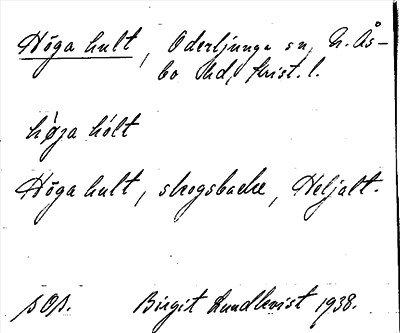 Höga hult, Oderljunga sn, N. Ås-
bo hd, Krist. l.
høga hólt
Höga hult, skogsbacke, Heljalt.
sOp. Birgit Lundkvist 1938.